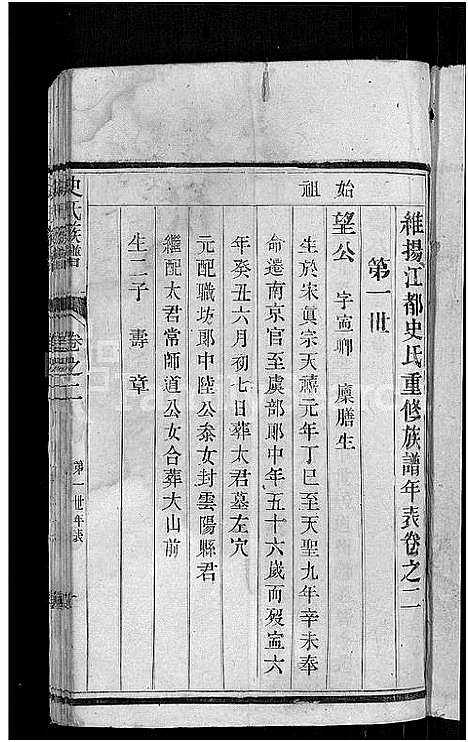 維揚江都史氏重修族譜年表卷之二
第一世
始祖
望公 字甯卿 廩膳生
生於宋眞宗天禧元年丁巳至天聖九年辛未奉
命遷南京官至虞部郞中年五十六歲而歿甯六
年癸丑六月初七日葬太君墓左穴
元配職坊郞中陸公泰女封雲陽縣君
繼配太君常師道公女合葬大山前
生二子 壽 章
史氏族譜
卷之二
第一世年表